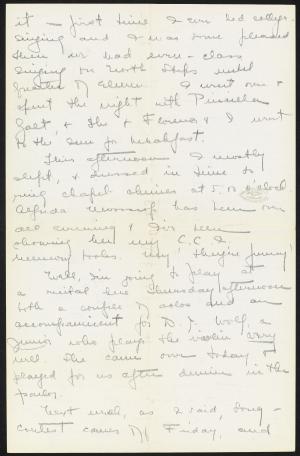 it – first time I ever led college
singing and I was some pleased
then we had even-class
singing on North Steps until
quarter of eleven. I went over &
spent the night with Priscilla
&, she & Florence & I went
to the Inn for breakfast.
This afternoon I mostly
slept, & dressed in time to
ring chapel chimes at 5.15 o'clock.
Alfrida has been over
all evening & I've been
showing her my C.C. &
memory books. My! They're funny!
Well, I'm going to play at
a recital here Thursday afternoon
with a couple of solos and an
accompaniment for D. J. Wolf, a
Junior who plays the violin very
well. She came over today &
played for us after dinner in the
parlor.
Next week, as I said, Song-
contest comes off Friday, and